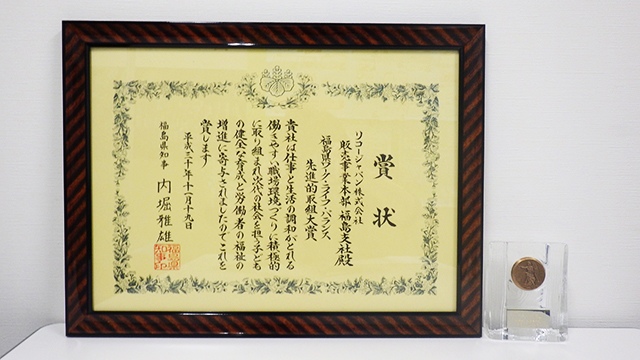 賞状
リコージャパン株式会社
販売事業本部 福島支社殿
福島県ワーク・ライフ・バランス
先進的取組大賞
貴社は仕事と生活の調和がとれる
働きやすい職場環境づくりに積極的
に取り組まれ次代の社会を担う子ども
の健全な育成と労働者の福祉の
増進に寄与されましたのでこれを
賞します
平成三十年十一月十九日
福島県知事 内堀雅雄